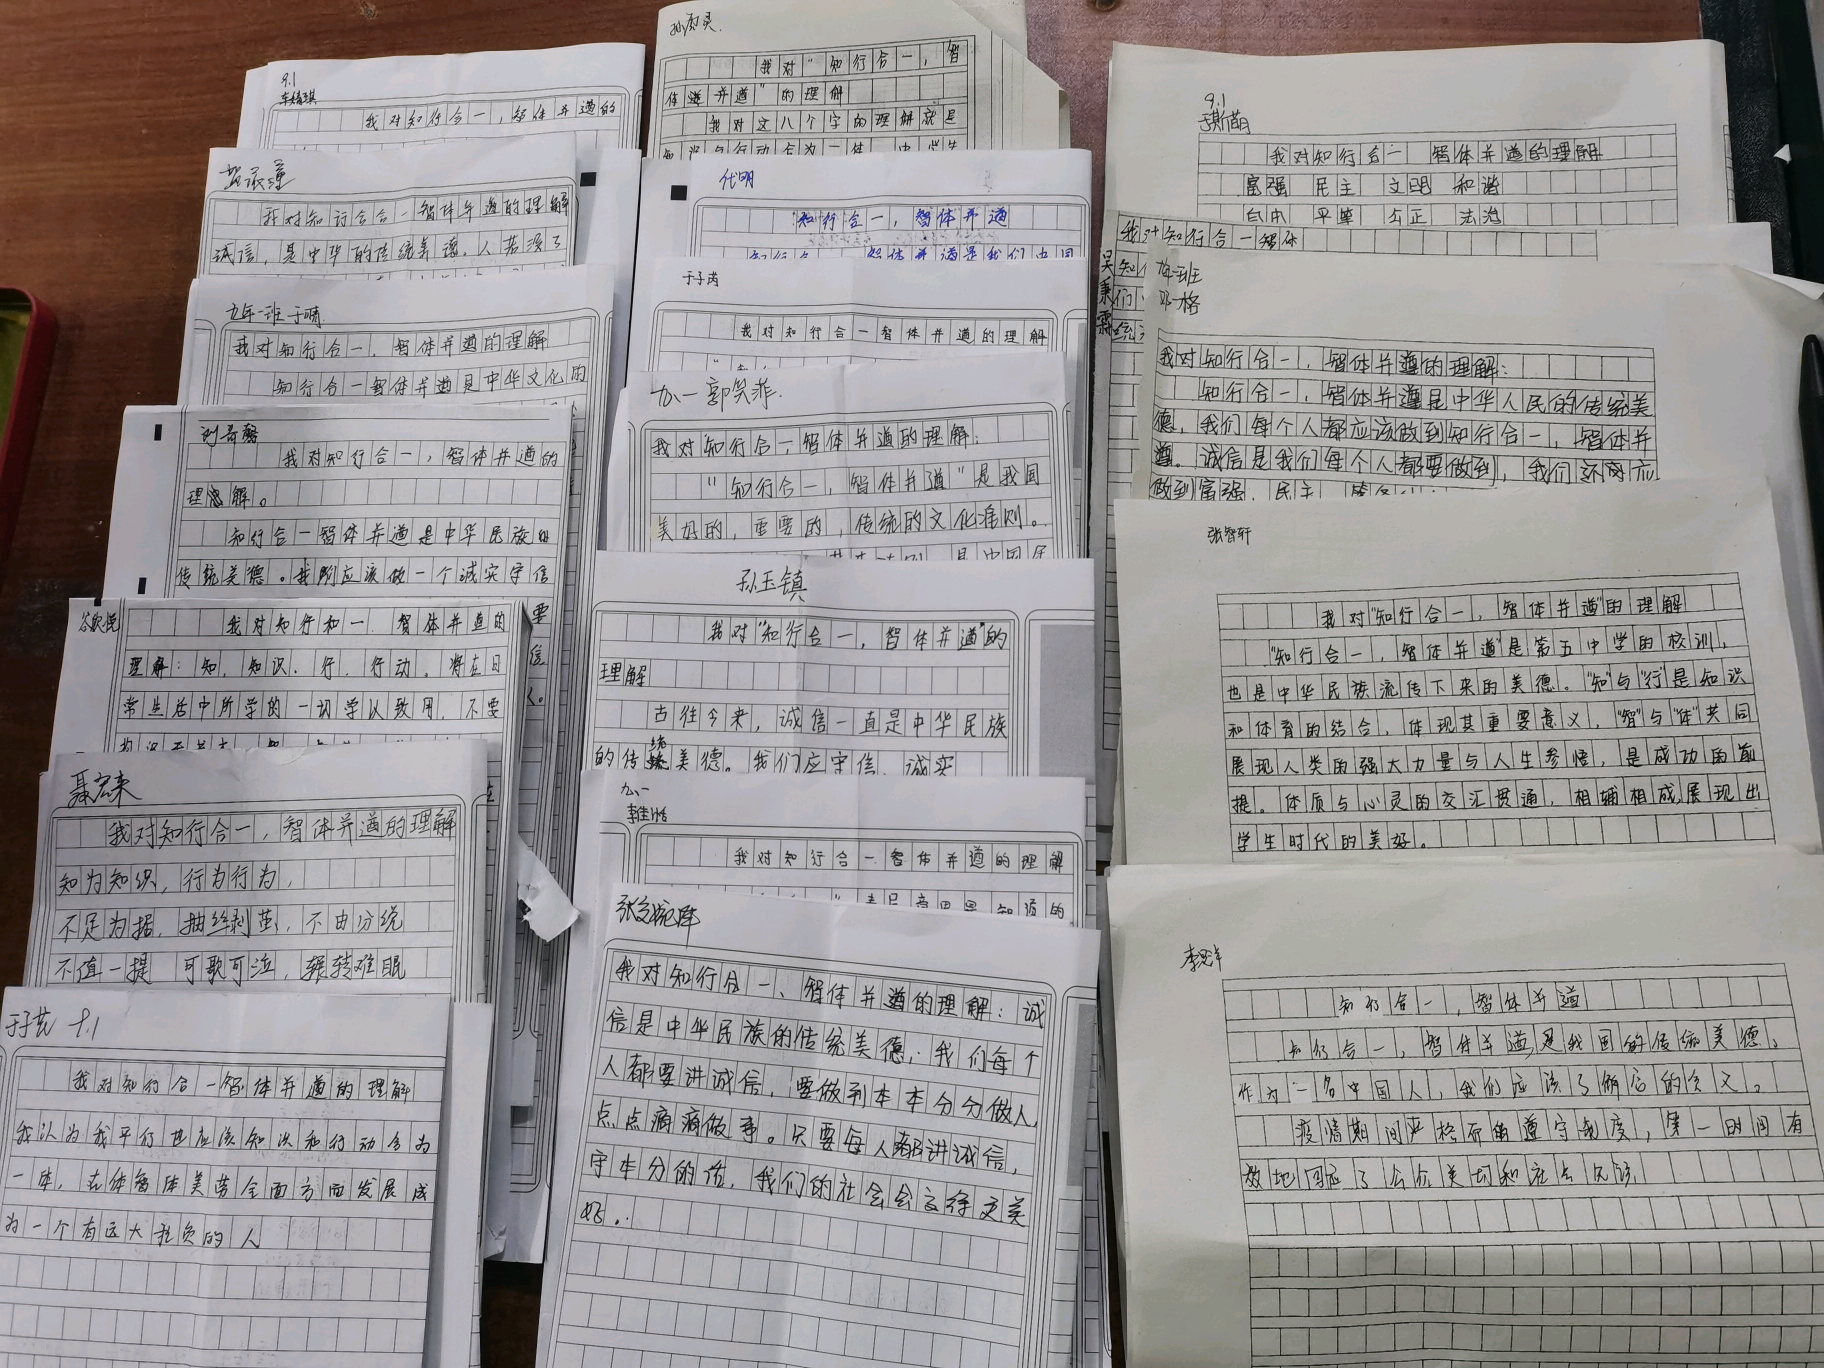 9.1
我对知行合一，智体并遒的
我对知行合合一智体并遒的理解
诚信，是中华的传统美德。人若没了
九年一班 于晴
我对知行合一，智体并遒的理解
知行合一智体并遒是中华文化的
我对知行合一，智体并遒的
理 解。
知行合一智体并遒是中华民族的
传统美德。我们应该做一个诚实守信
要
信
谷歆悦
我对知行和一 智体并遒的
理解：知，知识．行．行动。将在日
常生活中所学的一切学以致用，不要
聂宏来
我对知行合一，智体并遒的理解
知为知识，行为行为，
不足为据，抽丝剥茧，不由分说
不值一提 可歌可泣，辗转难眠
于子艺 9.1
我对知行合一智体并遒的理解
我认为我平行也应该知识和行动合为
一体，在体智体美劳全面方面发展成
为一个有远大抱负的人
我对“知行合一，智
体遒并遒”的理解
我对这八个字的理解就是
代明
知行合一，智体并遒
知行合一 智体并遒是我们中国
于子芮
我对知行合一智体并遒的理解
九·一郭笑菲．
我对知行合一智体并遒的理解：
“知行合一，智体并遒”是我国
美好的，重要的，传统的文化准则。
孙玉镇
我对“知行合一，智体并遒”的
理解
古往今来，诚信一直是中华民族
的传统美德。我们应守信，诚实
九、一
我对知行合一智体并遒的理解
我对知行合一、智体并遒的理解：诚
信是中华民族的传统美德，我们每个
人都要讲诚信，要做到本本分分做人，
点点滴滴做事。只要每人都讲诚信，
守本分的话，我们的社会会变得更美
好．
9.1
于斯萌
我对知行合一 智体并遒的理解
富强 民主 文明 和谐
自由 平等 公正 法治
我对知行合一智体
吴秉霖
九年一班
邓一格
我对知行合一，智体并遒的理解：
知行合一，智体并遒是中华人民的传统美
德，我们每个人都应该做到知行合一，智体并
遒。诚信是我们每个人都要做到，我们还应
做到富强，民主，
张智轩
我对“知行合一，智体并遒”的理解
“知行合一，智体并遒”是第五中学的校训，
也是中华民族流传下来的美德。“知”与“行”是知识
和体育的结合，体现其重要意义，“智”与“体”共同
展现人类的强大力量与人生参悟，是成功的前
提。体质与心灵的交汇贯通，相辅相成，展现出
学生时代的美好。
知行合一，智体并遒
知行合一，智体并遒是我国的传统美德，
作为一名中国人，我们应该了解它的含义。
疫情期间严格 遵守制度，第一时间有
效地回应了公众关切和社会